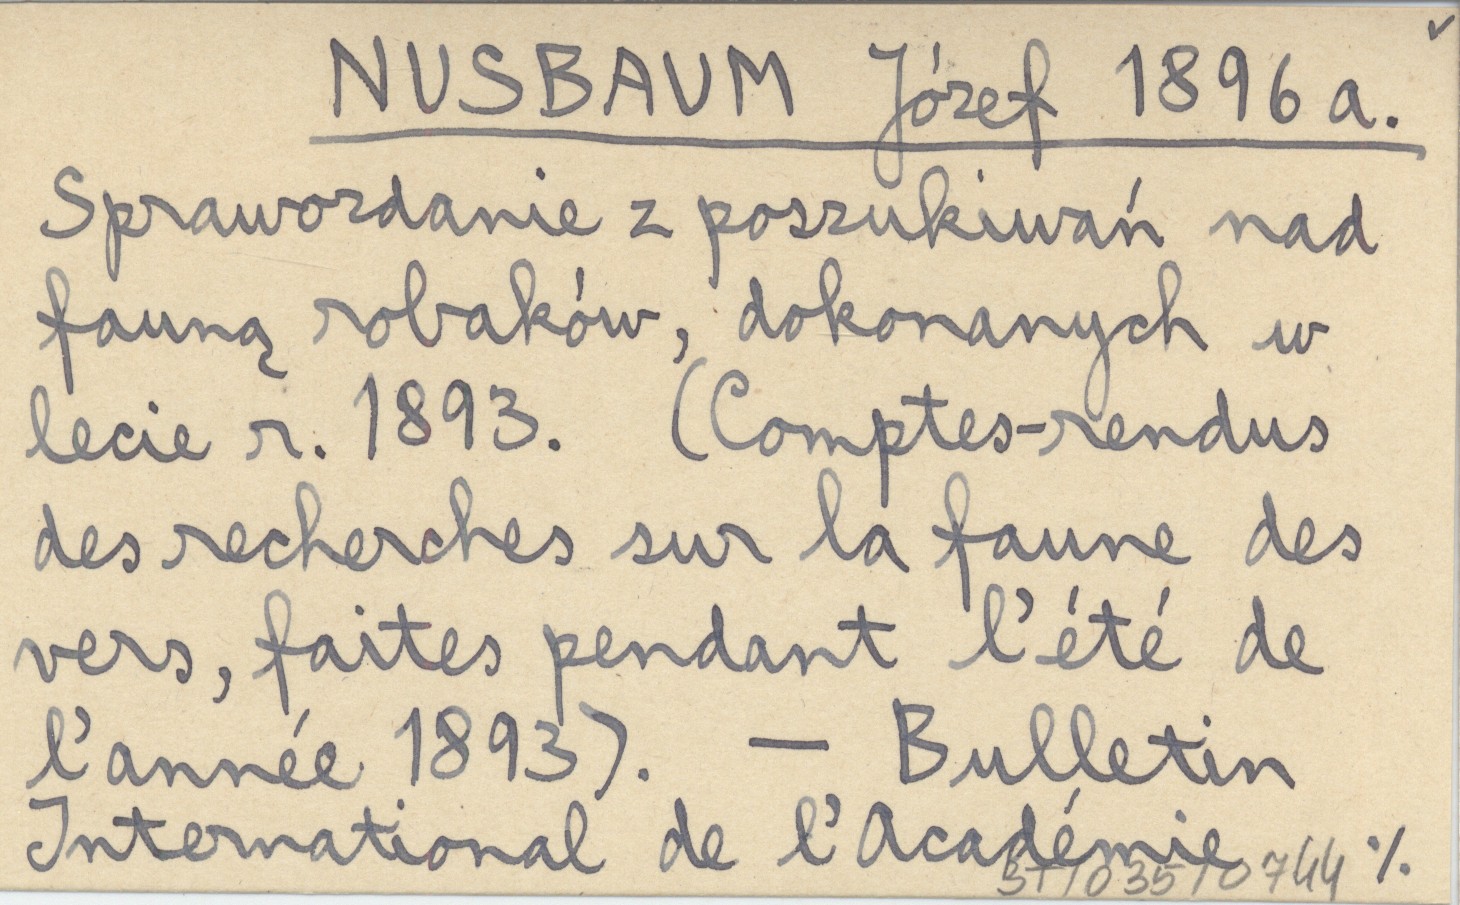 NUSBAUM Józef 1896 a.
Sprawozdanie z poszukiwań nad
fauną robaków, dokonanych w
lecie r. 1893. (Comptes-rendus
des recherches sur la faune des
vers, faites pendant l'été de
l'année 1893). — Bulletin
International de l'Académie ·/.
BT/035/0744